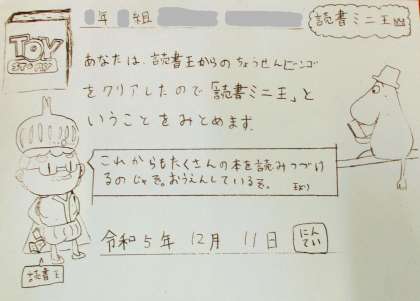 年 組
読書ミニ王
TOY
STORY
あなたは、読書王からのちょうせんビンゴ
をクリアしたので「読書ミニ王」と
いうことをみとめます。
これからもたくさんの本を読みつづけ
るのじゃぞ。おうえんしているぞ。 王より
令和5年 12月 11日
にん
てい
読書王